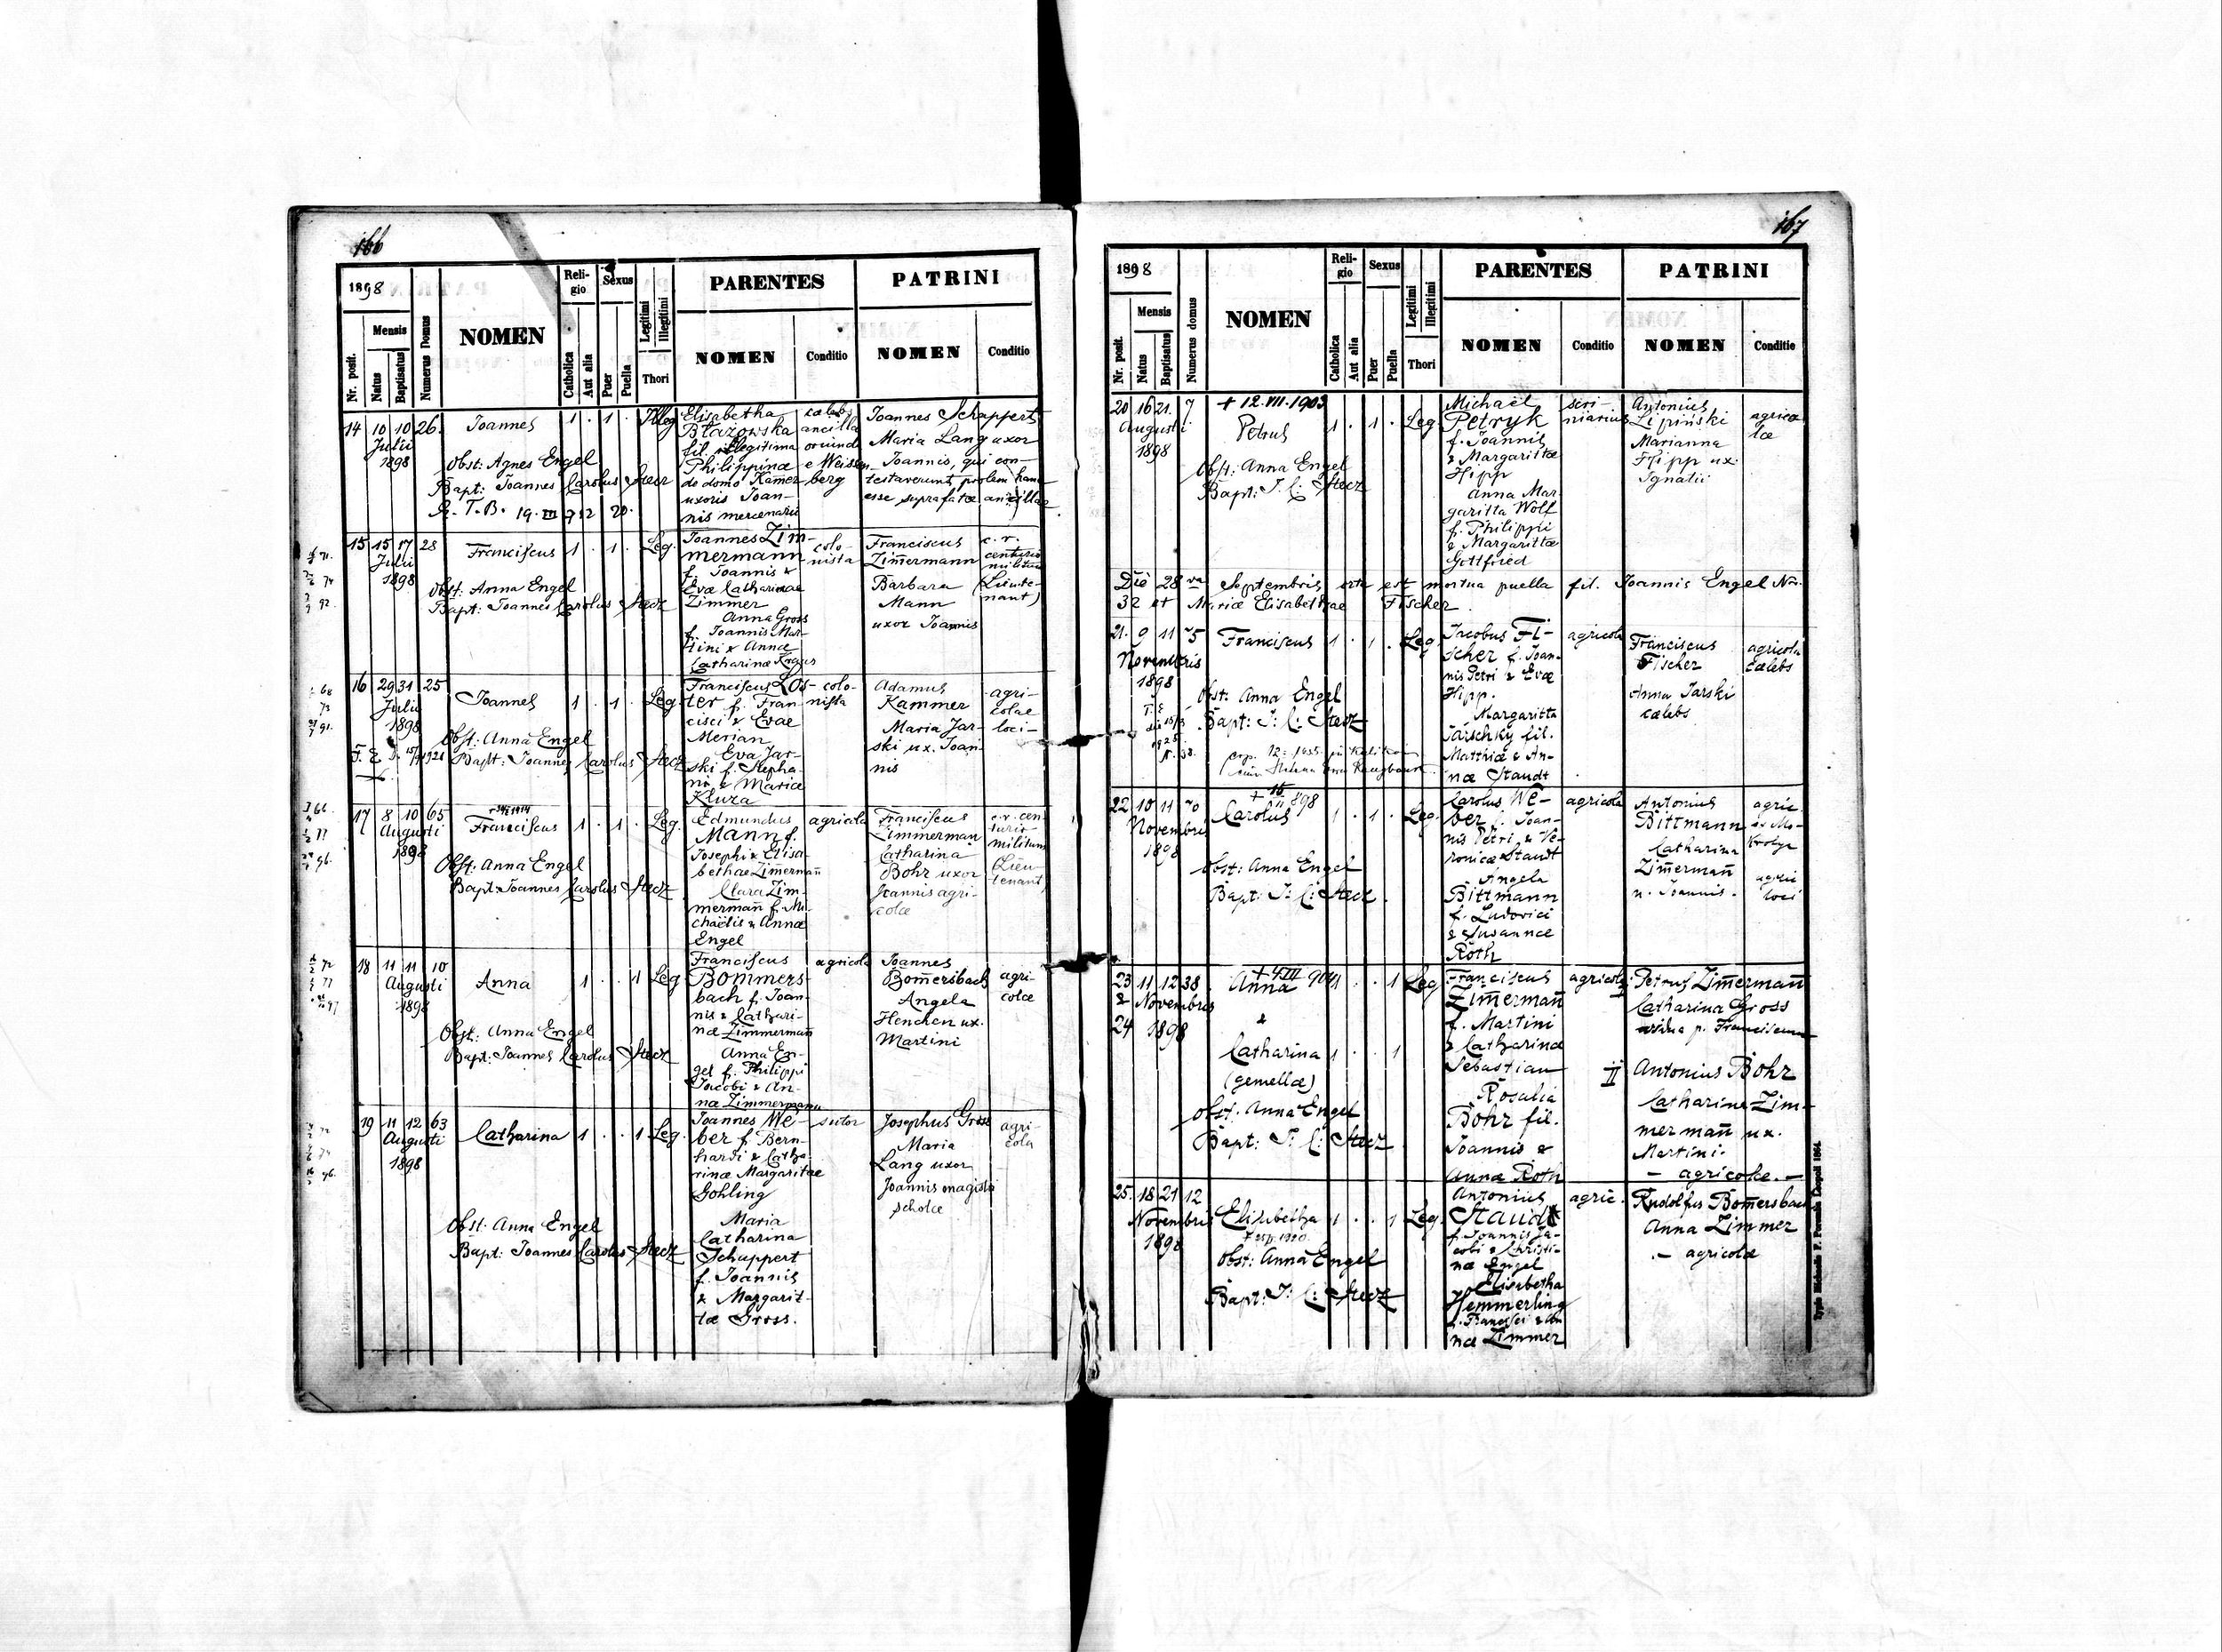 166
1898
Nr. posit.
Mensis
Natus
Baptisatus
Numerus Domus
NOMEN
Religio
Catholica
Aut alia
Sexus
Puer
Puella
Legitimi
Illegitimi
Thori
PARENTES
NOMEN
Conditio
PATRINI
NOMEN
Conditio
14 10 10 26.
Julii
1898
Joannes
Obst: Agnes Engel
Bapt: Joannes Carolus Stecz
1 . 1 . Illeg
Elisabetha
Błażowska
fil. illegitima
Philippinæ
de domo Kamer
uxoris Joan-
nis mercenarii
cœlebs
ancilla
oriunda
e Weissen-
berg
Joannes Schappert
Maria Lang uxor
Joannis, qui con-
testaverunt, prolem hanc
esse suprafatæ ancillæ
15 15 17 28
Julii
1898
Franciscus
Obst: Anna Engel
Bapt: Joannes Carolus Stecz
1 . 1 . Leg.
Joannes Zim-
mermann
f. Joannis &
Evæ Catharinae
Zimmer
Anna Gross
f. Joannis Mar-
tini & Annæ
Catharinæ Kraus
colo-
nista
Franciscus
Zim̄ermann
Barbara
Mann
uxor Joannis
c. r.
centurio
militum
(Lieute-
nant)
16 29 31 25
Julii
1898
Joannes
Obst: Anna Engel
Bapt: Joannes Carolus Stecz
1 . 1 . Leg.
Franciscus Kos-
ter f. Fran-
cisci & Evae
Merian
Eva Jar-
ski f. Stepha-
ni & Mariæ
Kluza
colo-
nista
Adamus
Kammer
Maria Jar-
ski ux. Joan-
nis
agri-
colae
loci
17 8 10 65
Augusti
1898
Franciscus
Obst: Anna Engel
Bapt: Joannes Carolus Stecz
1 . 1 . Leg.
Edmundus
Mann f.
Josephi & Elisa-
bethae Zimerman̄
Clara Zim-
merman̄ f. Mi-
chaëlis & Annæ
Engel
agricola
Franciscus
Zimmerman
Catharina
Bohr uxor
Joannis agri-
colæ
c. r. cen-
turio
militum
(Lieu-
tenant)
18 11 11 10
Augusti
1898
Anna
Obst: Anna Engel
Bapt: Joannes Carolus Stecz
1 . . 1 Leg
Franciscus
Bommers-
bach f. Joan-
nis & Cathari-
næ Zimmerman̄
Anna En-
gel f. Philippi
Jacobi & An-
næ Zimmermann
agricola
Joannes
Bom̄ersbach
Angela
Henchen ux.
Martini
agri-
colæ
19 11 12 63
Augusti
1898
Catharina
Obst: Anna Engel
Bapt: Joannes Carolus Stecz
1 . . 1 Leg.
Joannes We-
ber f. Bern-
hardi & Catha-
rinæ Margaritae
Gohling
Maria
Catharina
Schappert
f. Joannis
& Margarit-
tæ Gross.
sutor
Josephus Gross
Maria
Lang uxor
Joannis magistri
scholæ
agri-
cola
167
1898
Nr. posit.
Mensis
Natus
Baptisatus
Numerus domus
NOMEN
Religio
Catholica
Aut alia
Sexus
Puer
Puella
Legitimi
Illegitimi
Thori
PARENTES
NOMEN
Conditio
PATRINI
NOMEN
Conditio
20 16 21. 7
Augusti
1898
+ 12. VII. 1903
Petrus
Obst: Anna Engel
Bapt: J. C: Stecz
1 . 1 . Leg.
Michaël
Petryk
f. Joannis
& Margarittæ
Hipp
Anna Mar-
garitta Wolf
f. Philippi
& Margarittæ
Gottfried
scri-
niarius
Antonius
Lipiński
Marianna
Hipp ux.
Ignatii
agrico
læ
Die 28va Septembris orta est mortua puella fil. Joannis Engel No.
32 et Mariæ Elisabethae Fischer.
21. 9 11 75
Novembris
1898
Franciscus
Obst: Anna Engel
Bapt: J. C: Stecz
1 . 1 . Leg.
Jacobus Fi-
scher f. Joan-
nis Petri & Evæ
Hipp.
Margaritta
Jarschky fil.
Matthiæ & An-
næ Staudt
agricola
Franciscus
Fischer
Anna Jarski
cælebs
agricola
cælebs
22 10 11 70
Novembris
1898
Carolus
Obst: Anna Engel
Bapt: J. C: Stecz
1 . 1 . Leg.
Carolus We-
ber f. Joan-
nis Petri & Ve-
ronicæ Staudt
Angela
Bittmann
f. Ludovici
& Susannæ
Roth
agricola
Antonius
Bittmann
Catharina
Zim̄erman̄
u. Joannis.
agric
agric
loci
23 11 12 38
& Novembris
24 1898
Anna
&
Catharina
(gemellæ)
Obst: Anna Engel
Bapt: J. C: Stecz
1 . . 1 Leg
1 . . 1
Franciscus
Zim̄erman̄
f. Martini
& Catharinæ
Sebastian
Rosalia
Bohr fil.
Joannis &
Annæ Roth
agricola
I
Petrus Zim̄erman̄
Catharina Gross
II
Antonius Bohr
Catharina Zim-
merman̄ ux.
Martini.
— agricolæ. —
25. 18 21 12
Novembris
1898
Elisabetha
Obst: Anna Engel
Bapt: J. C: Stecz
1 . . 1 Leg.
Antonius
Staudt
f. Joannis Ja-
cobi & Christi-
næ Engel
Elisabetha
Hemmerling
f. Francisci & An-
næ Zimmer
agric.
Rudolfus Bom̄ersbach
Anna Zimmer
— agricolæ